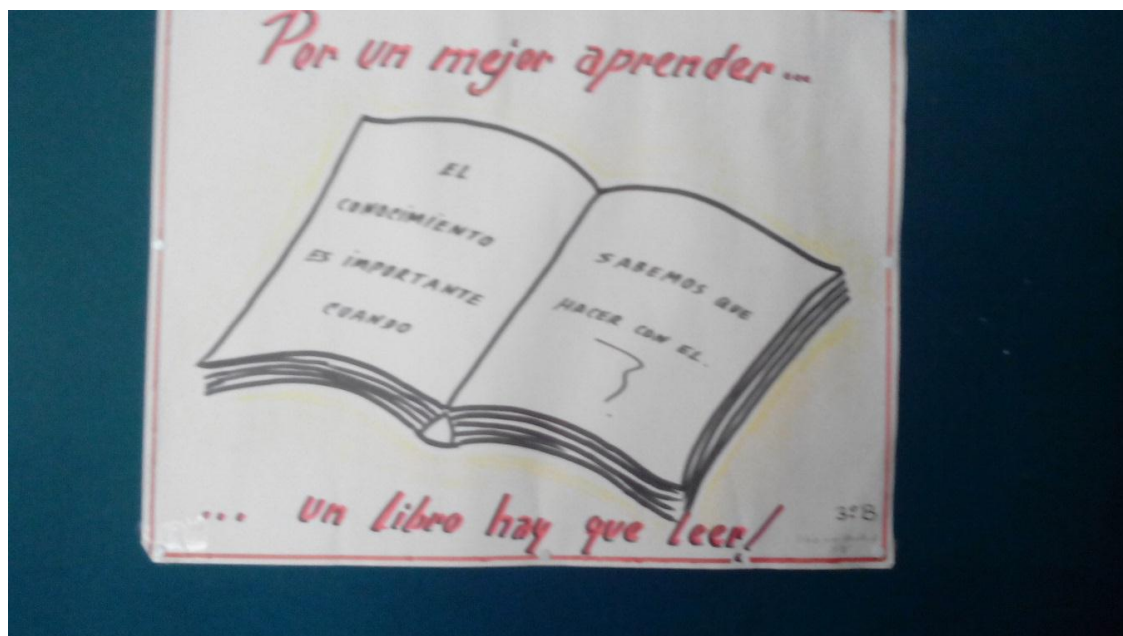 Por un mejor aprender...
EL
CONOCIMIENTO
ES IMPORTANTE
CUANDO
SABEMOS QUE
HACER CON EL.
?
... un libro hay que leer!
3ºB